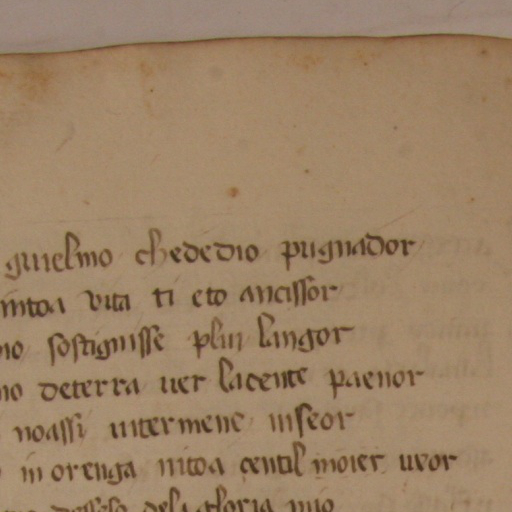 guielmo che de dio pugnador
intoa vita ti eto ancissor
sostignisse plui langor
de terra uer la cente paenor
noassi uitermene in seor
in orenga nitoa çentil moier ueor
dela gloria mio